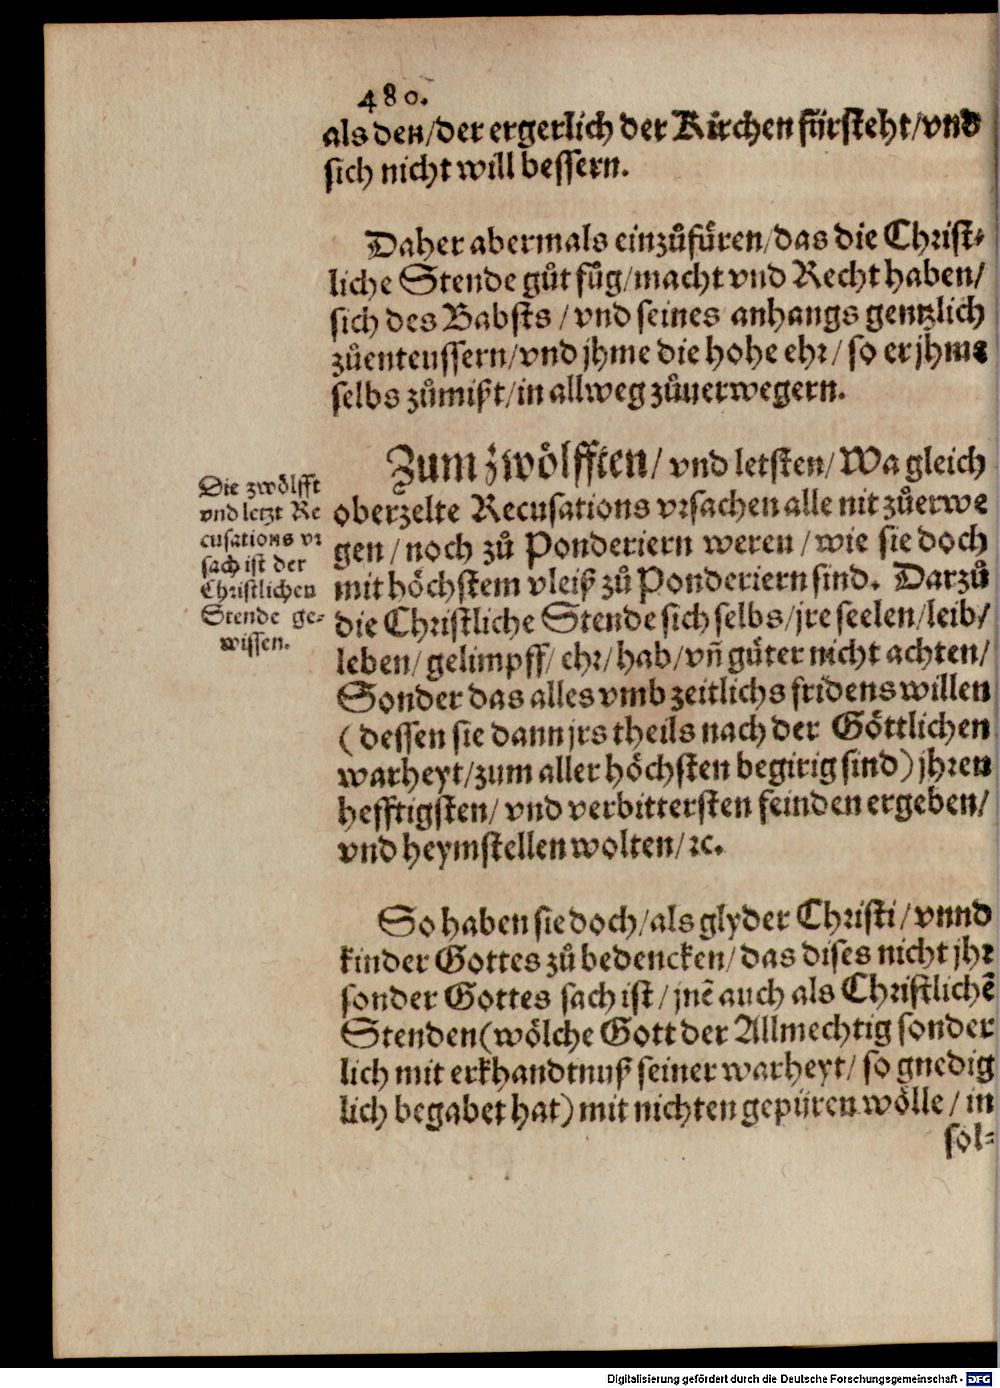 480.
als den/der ergerlich der Kirchen fürsteht/vnd
sich nicht will bessern.
Daher abermals einzůfüren/das die Christ-
liche Stende gůt fůg/macht vnd Recht haben/
sich des Babsts/vnd seines anhangs gentzlich
zůenteussern/vnd jhme die hohe ehr/so er jhme
selbs zůmißt/in allweg zůuerwegern.
Die zwölfft
vnd letzt Re
cusations vr
sach ist der
Christlichen
Stende ge-
wissen.
Zum zwölfften/vnd letsten/Wa gleich
oberzelte Recusations vrsachen alle nit zůerwe
gen/noch zů Ponderiern weren/wie sie doch
mit höchstem vleiß zů Ponderiern sind. Darzů
die Christliche Stende sich selbs/jre seelen/leib/
leben/gelimpff/ehr/hab/vñ güter nicht achten/
Sonder das alles vmb zeitlichs fridens willen
(dessen sie dann jrs theils nach der Göttlichen
warheyt/zum aller höchsten begirig sind) jhren
hefftigsten/vnd verbittersten feinden ergeben/
vnd heymstellen wolten/ꝛc.
So haben sie doch/als glyder Christi/vnnd
kinder Gottes zů bedencken/das dises nicht jhr
sonder Gottes sach ist/jnē auch als Christlichē
Stenden (wölche Gott der Allmechtig sonder
lich mit erkhandtnuß seiner warheyt/so gnedig
lich begabet hat) mit nichten gepüren wölle/in
söl-
Digitalisierung gefördert durch die Deutsche Forschungsgemeinschaft - DFG